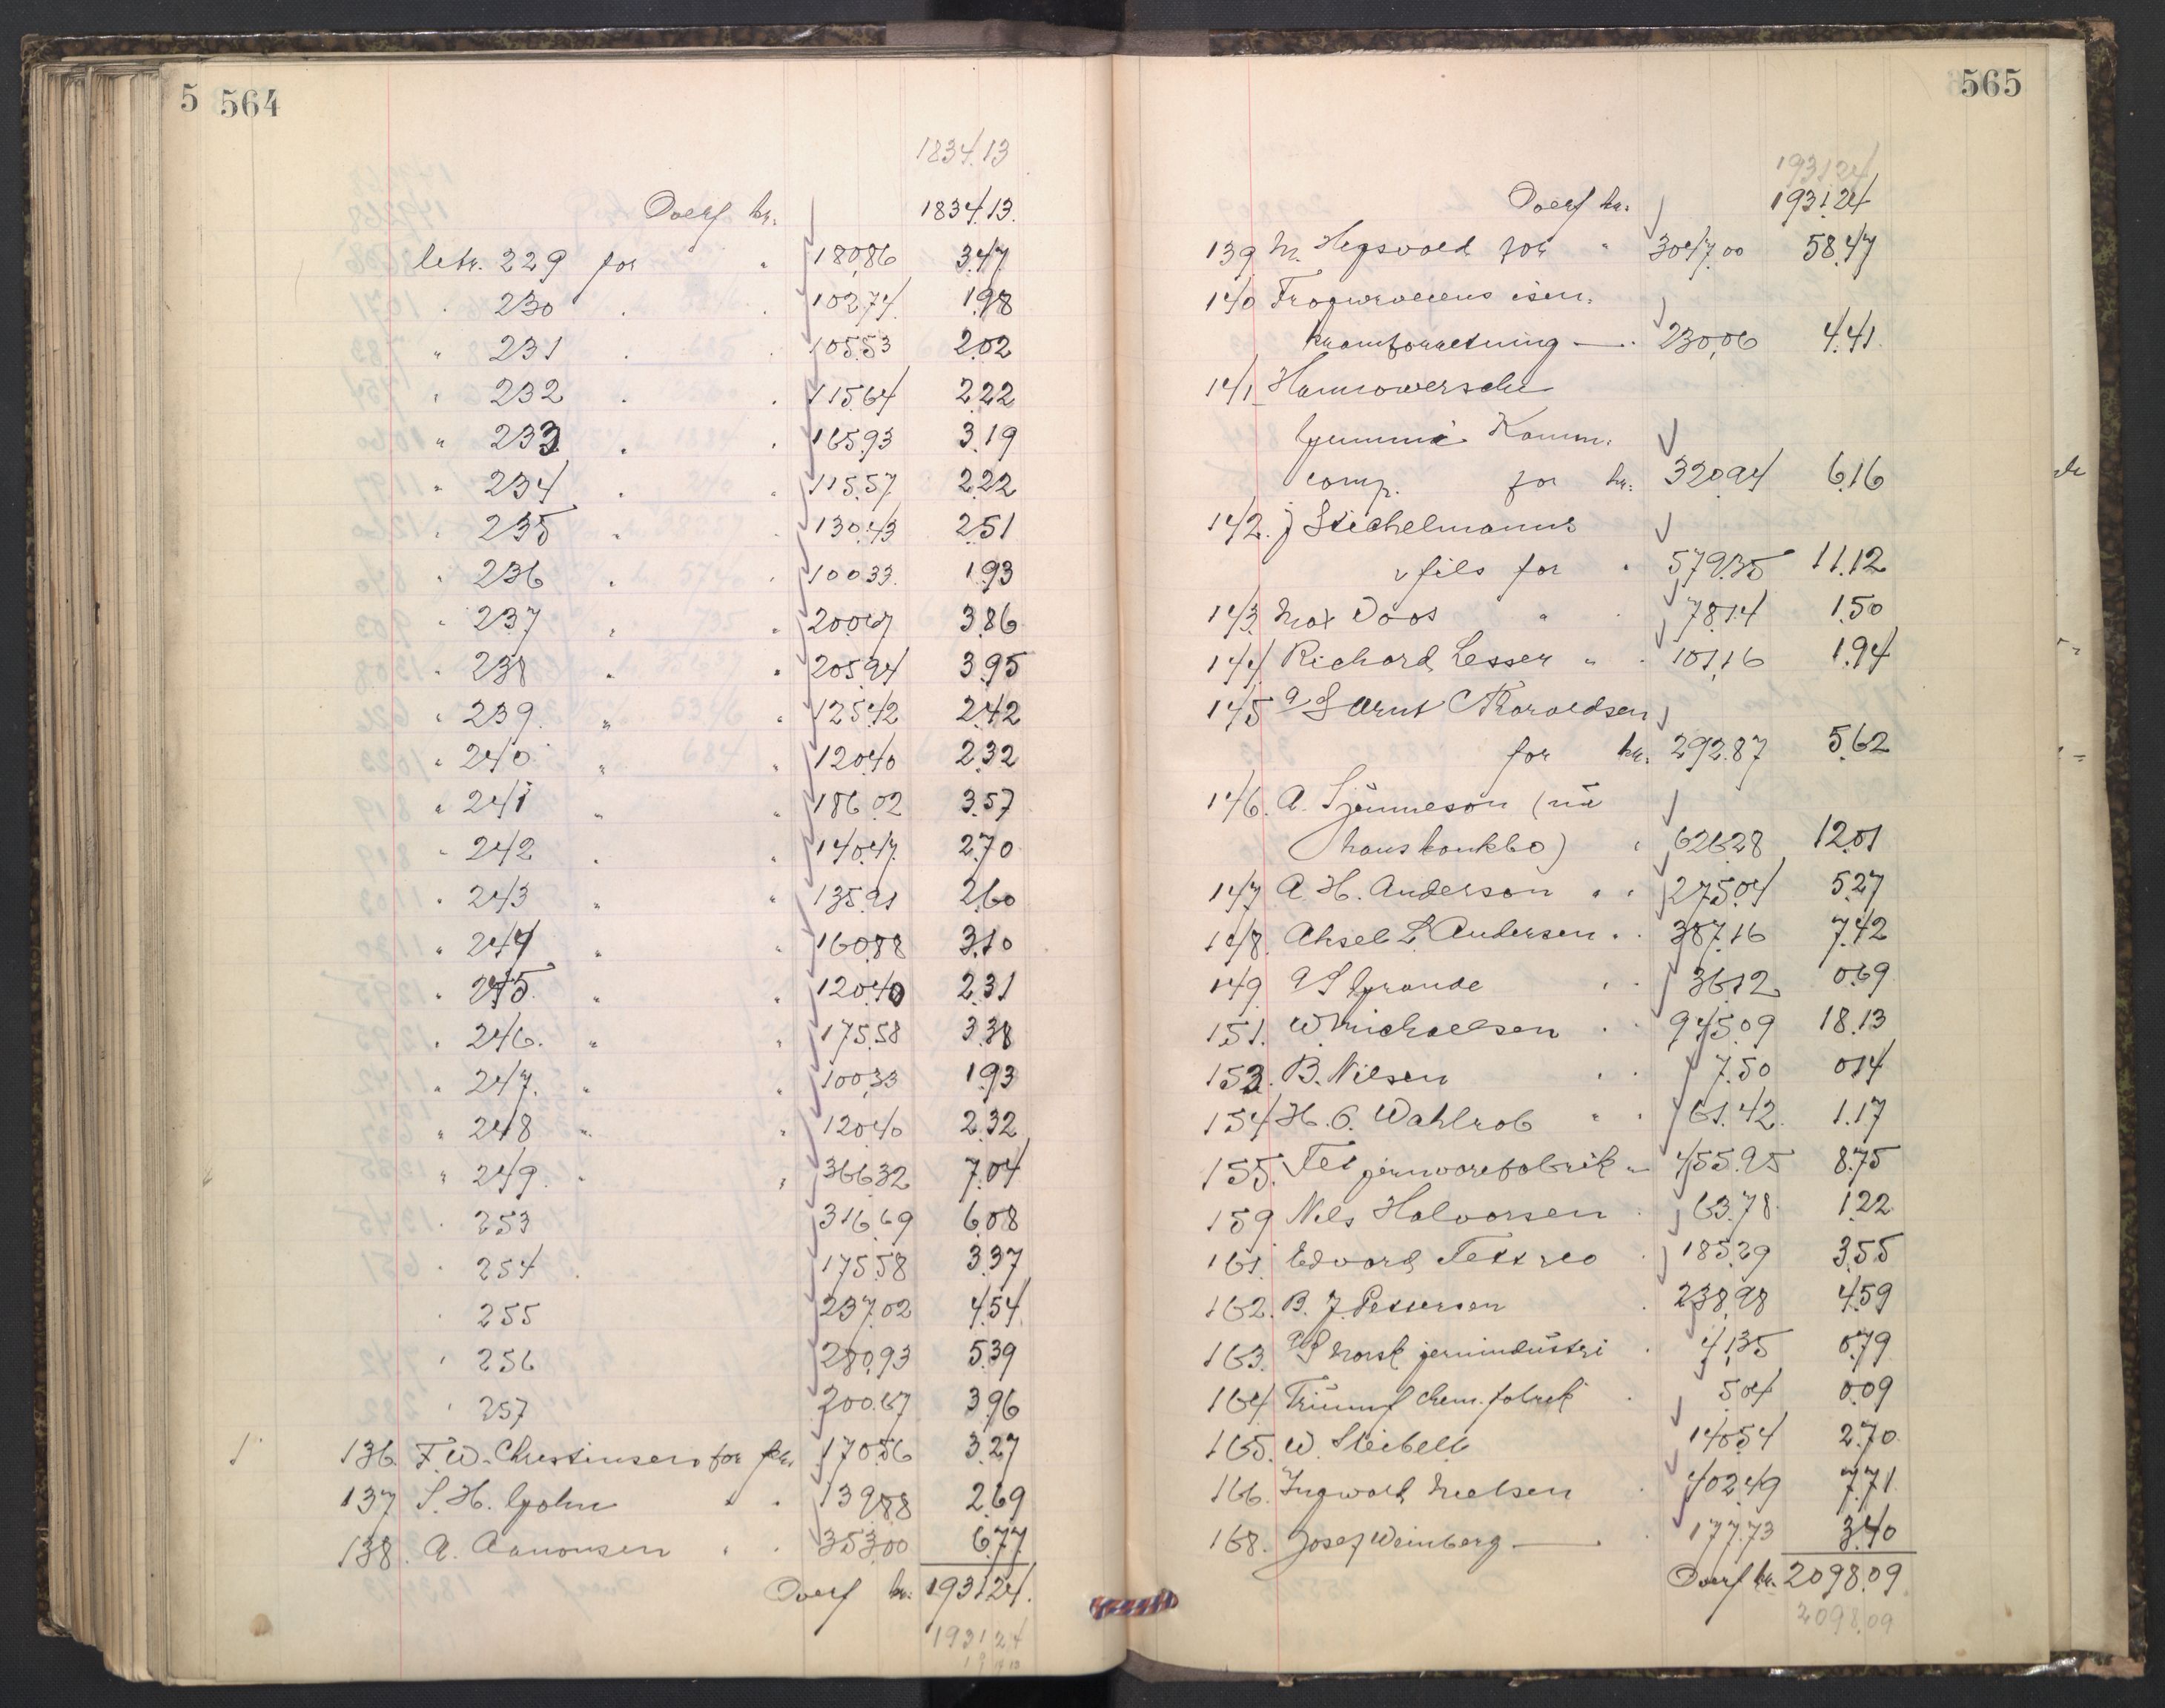 5 564
1834.13
Overf kr. 1834.13.
letr. 229 for " 180,86 3.47
" 230 " " 102,74 1.98
" 231 " " 105.53 2.02
" 232 " " 115.64 2.22
" 233 " " 165.93 3.19
" 234 " " 115.57 2.22
" 235 " " 130.43 2.51
" 236 " " 100.33 1.93
" 237 " " 200.67 3.86
" 238 " " 205.94 3.95
" 239. " " 125.42 2.42
" 240 " " 120.40 2.32
" 241 " " 186.02 3.57
" 242 " " 140.47 2.70
" 243 " " 135.91 2.60
" 244 " " 160.88 3.10
" 245. " " 120.40 2.31
" 246. " " 175.58 3.38
" 247. " " 100.33 1.93
" 248 " " 120.40 2.32
" 249. " " 366.32 7.04
" 253 316.69 6.08
" 254 175.58 3.37
" 255 237.02 4.54
" 256 280.93 5.39
" 257 200.67 3.96
136. F. W. Christinsen for kr. 170.56 3.27
137 S. H. Gjohn " " 139.88 2.69
138. A. Aanonsen " " 353.00 6.77
Overf kr. 1931.24.
1931 24
565
1931 24
Overf kr. 1931.24
139 M. Hegsvold for " 3047.00 58.47
140 isen.
kramforretning — " 230,06 4.41.
141 Hannowersche
Gummi Kamm.
comp. for kr. 320.94 6.16
142. J Stichelmanns
& fils for " 579.35 11.12
143. Max Voos " " 78.14 1.50
144. Richard Lesser " " 101.16 1.94
145 A/S Arnt Thoraldsen
for kr. 292.87 5.62
146. A. Sjünneson (nü
hans konkbo) " 626.28 12.01
147 A. H. Anderson " " 275.04 5.27
148. Aksel L. Andersen " " 387.16 7.42
149. A/S Grande " " 36.12 0.69
151. W. Michaelsen " " 945.09 18.13
153. B. Nilsen " " 7.50 0.14
154 H. O. Wahlrob " " 61.42. 1.17
155. jernvarefabrik " 455.95 8.75
159 Nils Halvorsen " 63.78. 1.22
161. Edvard " 185.29 3.55
162. B. J. Pettersen " 238.98 4.59
163. A/S Norsk jernindüstri " 41.35 0.79
164 Triümf chem. fabrik " 5.04 0.09
165. W. Steibelt 140.54 2.70
166. Ingwald Nielsen " 402.49 7.71
168. Josef Weinberg — " 177.73 3.40
Overf kr. 2098.09
2098.09